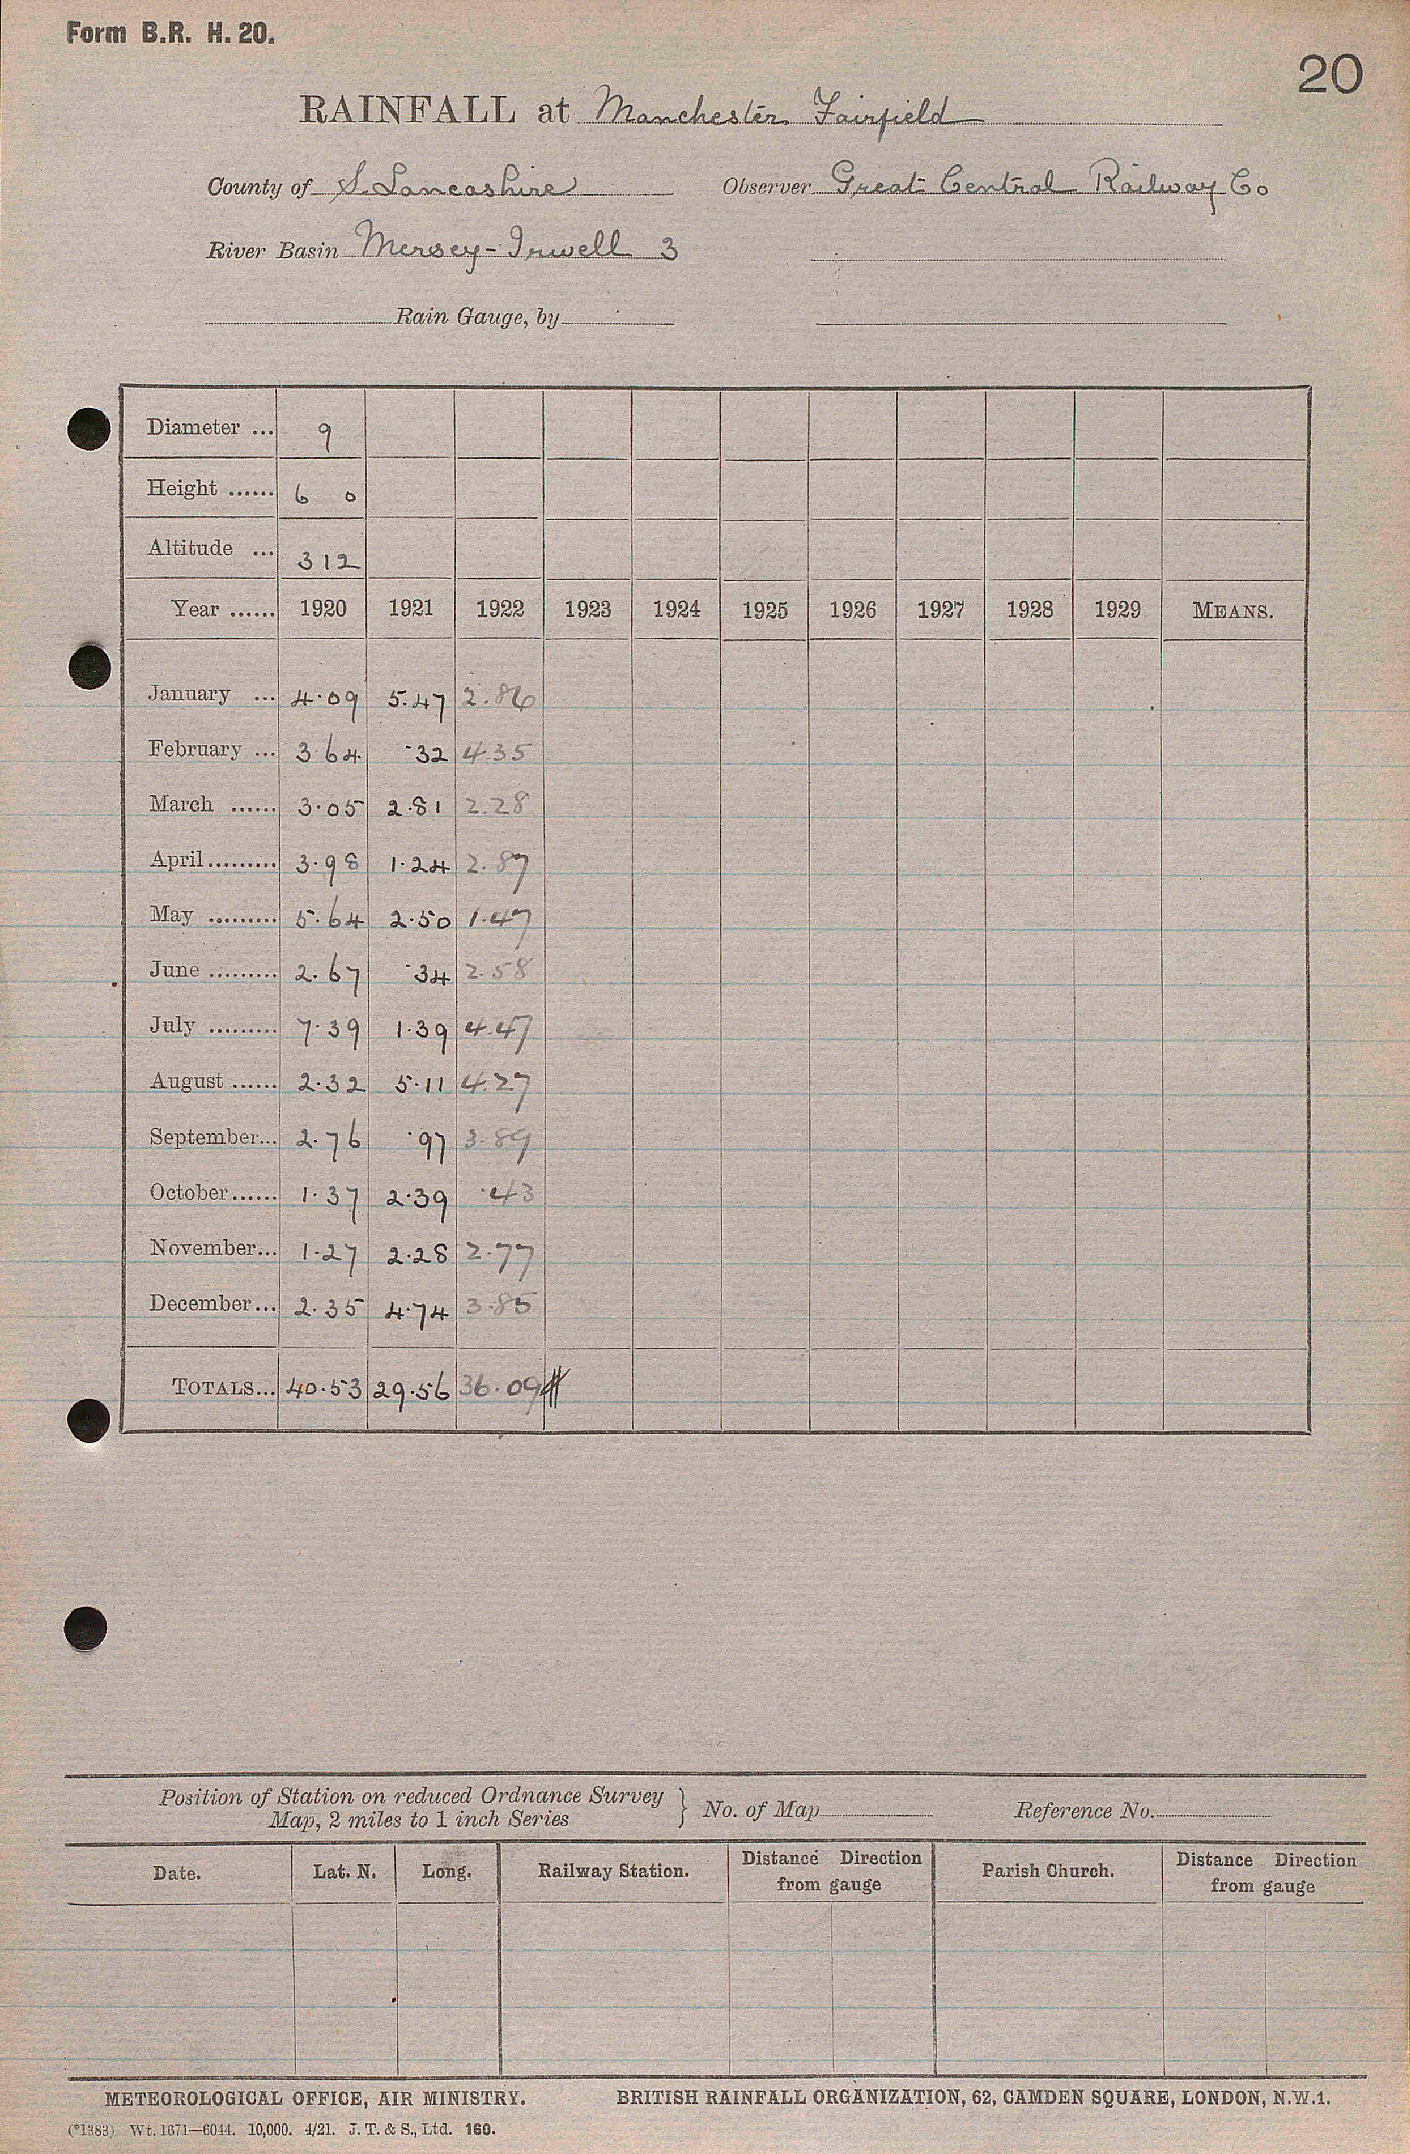 Form B.R. H. 20.
20
RAINFALL at Manchester Fairfield
County of S. Lancashire Observer Great Central Railway Co
River Basin Mersey-Irwell 3
Rain Gauge, by
Diameter ... 9
Height ...... 6 0
Altitude ... 312
Year ...... 1920 1921 1922 1923 1924 1925 1926 1927 1928 1929 MEANS.
January ... 4.09 5.47 2.86
February ... 3.64 .32 4.35
March ...... 3.05 2.81 2.28
April......... 3.98 1.24 2.87
May ......... 5.64 2.50 1.47
June ......... 2.67 .34 2.58
July ......... 7.39 1.39 4.47
August ...... 2.32 5.11 4.27
September... 2.76 .97 3.89
October...... 1.37 2.39 .43
November... 1.27 2.28 2.77
December... 2.35 4.74 3.85
TOTALS... 40.53 29.56 36.09
Position of Station on reduced Ordnance Survey
Map, 2 miles to 1 inch Series } No. of Map Reference No.
Date. Lat. N. Long. Railway Station. Distance Direction from gauge Parish Church. Distance Direction from gauge
METEOROLOGICAL OFFICE, AIR MINISTRY. BRITISH RAINFALL ORGANIZATION, 62, CAMDEN SQUARE, LONDON, N.W.1.
(*1383) Wt. 1671—6044. 10,000. 4/21. J. T. & S., Ltd. 160.